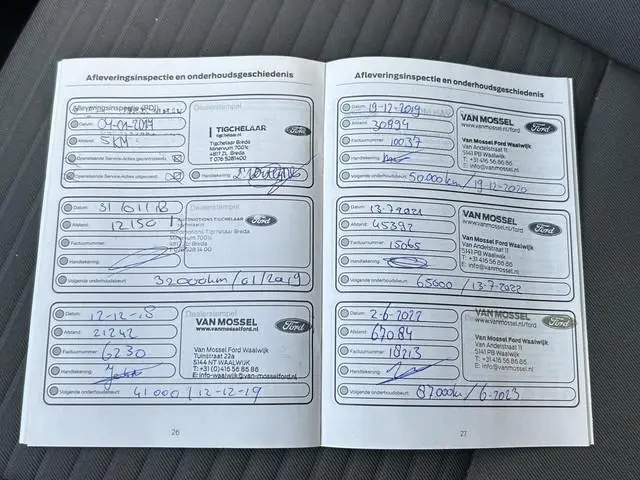 Afleveringsinspectie en onderhoudsgeschiedenis
Afleveringsinspectie (PDI)
Dealerstempel
Datum:
Afstand: 5KM
TIGCHELAAR
tigchelaar.nl
Tigchelaar Breda
Minervum 7001c
4817 ZL Breda
T 076 5281400
Ford
Openstaande Service-Acties gecontroleerd:
Openstaande Service-Acties uitgevoerd:
Handtekening:
Datum: 31/01/18
Afstand: 12150
Factuurnummer:
Handtekening:
Dealerstempel
Automotions Tigchelaar Breda
Minervum 7001c
4817 ZL Breda
Ford
Volgende onderhoudsbeurt: 32000km/01/2019
Datum: 12-12-18
Afstand: 21242
Factuurnummer: 6230
Handtekening:
Dealerstempel
VAN MOSSEL
www.vanmosselford.nl
Ford
Van Mossel Ford Waalwijk
Tuinstraat 22a
5144 NT WAALWIJK
T: +31 (0)416 56 86 86
E: info-waalwijk@van-mosselford.nl
Volgende onderhoudsbeurt: 41000/12-12-19
26
Afleveringsinspectie en onderhoudsgeschiedenis
Datum: 19-12-2019
Afstand: 30894
Factuurnummer: 10037
Handtekening:
VAN MOSSEL
www.vanmossel.nl/ford
Ford
Van Mossel Ford Waalwijk
Van Andelstraat 11
5141 PB Waalwijk
T: +31 416 56 86 86
E: info@vanmossel.nl
Volgende onderhoudsbeurt: 50.000km/19-12-2020
Datum: 13-7-2021
Afstand: 45392
Factuurnummer: 15065
Handtekening:
VAN MOSSEL
www.vanmossel.nl/ford
Ford
Van Mossel Ford Waalwijk
Van Andelstraat 11
5141 PB Waalwijk
T: +31 416 56 86 86
E: info@vanmossel.nl
Volgende onderhoudsbeurt: 65000/13-7-2022
Datum: 2-6-2022
Afstand: 67084
Factuurnummer: 18213
Handtekening:
Dealerstempel
VAN MOSSEL
www.vanmossel.nl/ford
Ford
Van Mossel Ford Waalwijk
Van Andelstraat 11
5141 PB Waalwijk
T: +31 416 56 86 86
E: info@vanmossel.nl
Volgende onderhoudsbeurt: 87.000km/6-2023
27